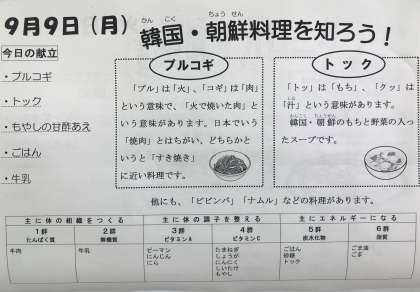 9月9日（月）
韓国・朝鮮料理を知ろう！
かん こく ちょう せん
今日の献立
・プルコギ
・トック
・もやしの甘酢あえ
・ごはん
・牛乳
プルコギ
「プル」は「火」、「コギ」は「肉」
という意味で、「火で焼いた肉」と
いう意味があります。日本でいう
「焼肉」とはちがい、どちらかと
いうと「すき焼き」
に近い料理です。
トック
「トッ」は「もち」、「クッ」は
「汁」という意味があります。
韓国・朝鮮のもちと野菜の入っ
たスープです。
他にも、「ビビンバ」「ナムル」などの料理があります。
主に体の組織をつくる 主に体の調子を整える 主にエネルギーになる
1群 2群 3群 4群 5群 6群
たんぱく質 無機質 ビタミンA ビタミンC 炭水化物 脂質
牛肉 牛乳 ピーマン たまねぎ ごはん ごま油
にんじん しょうが 砂糖 ごま
にら にんにく トック
しいたけ
もやし